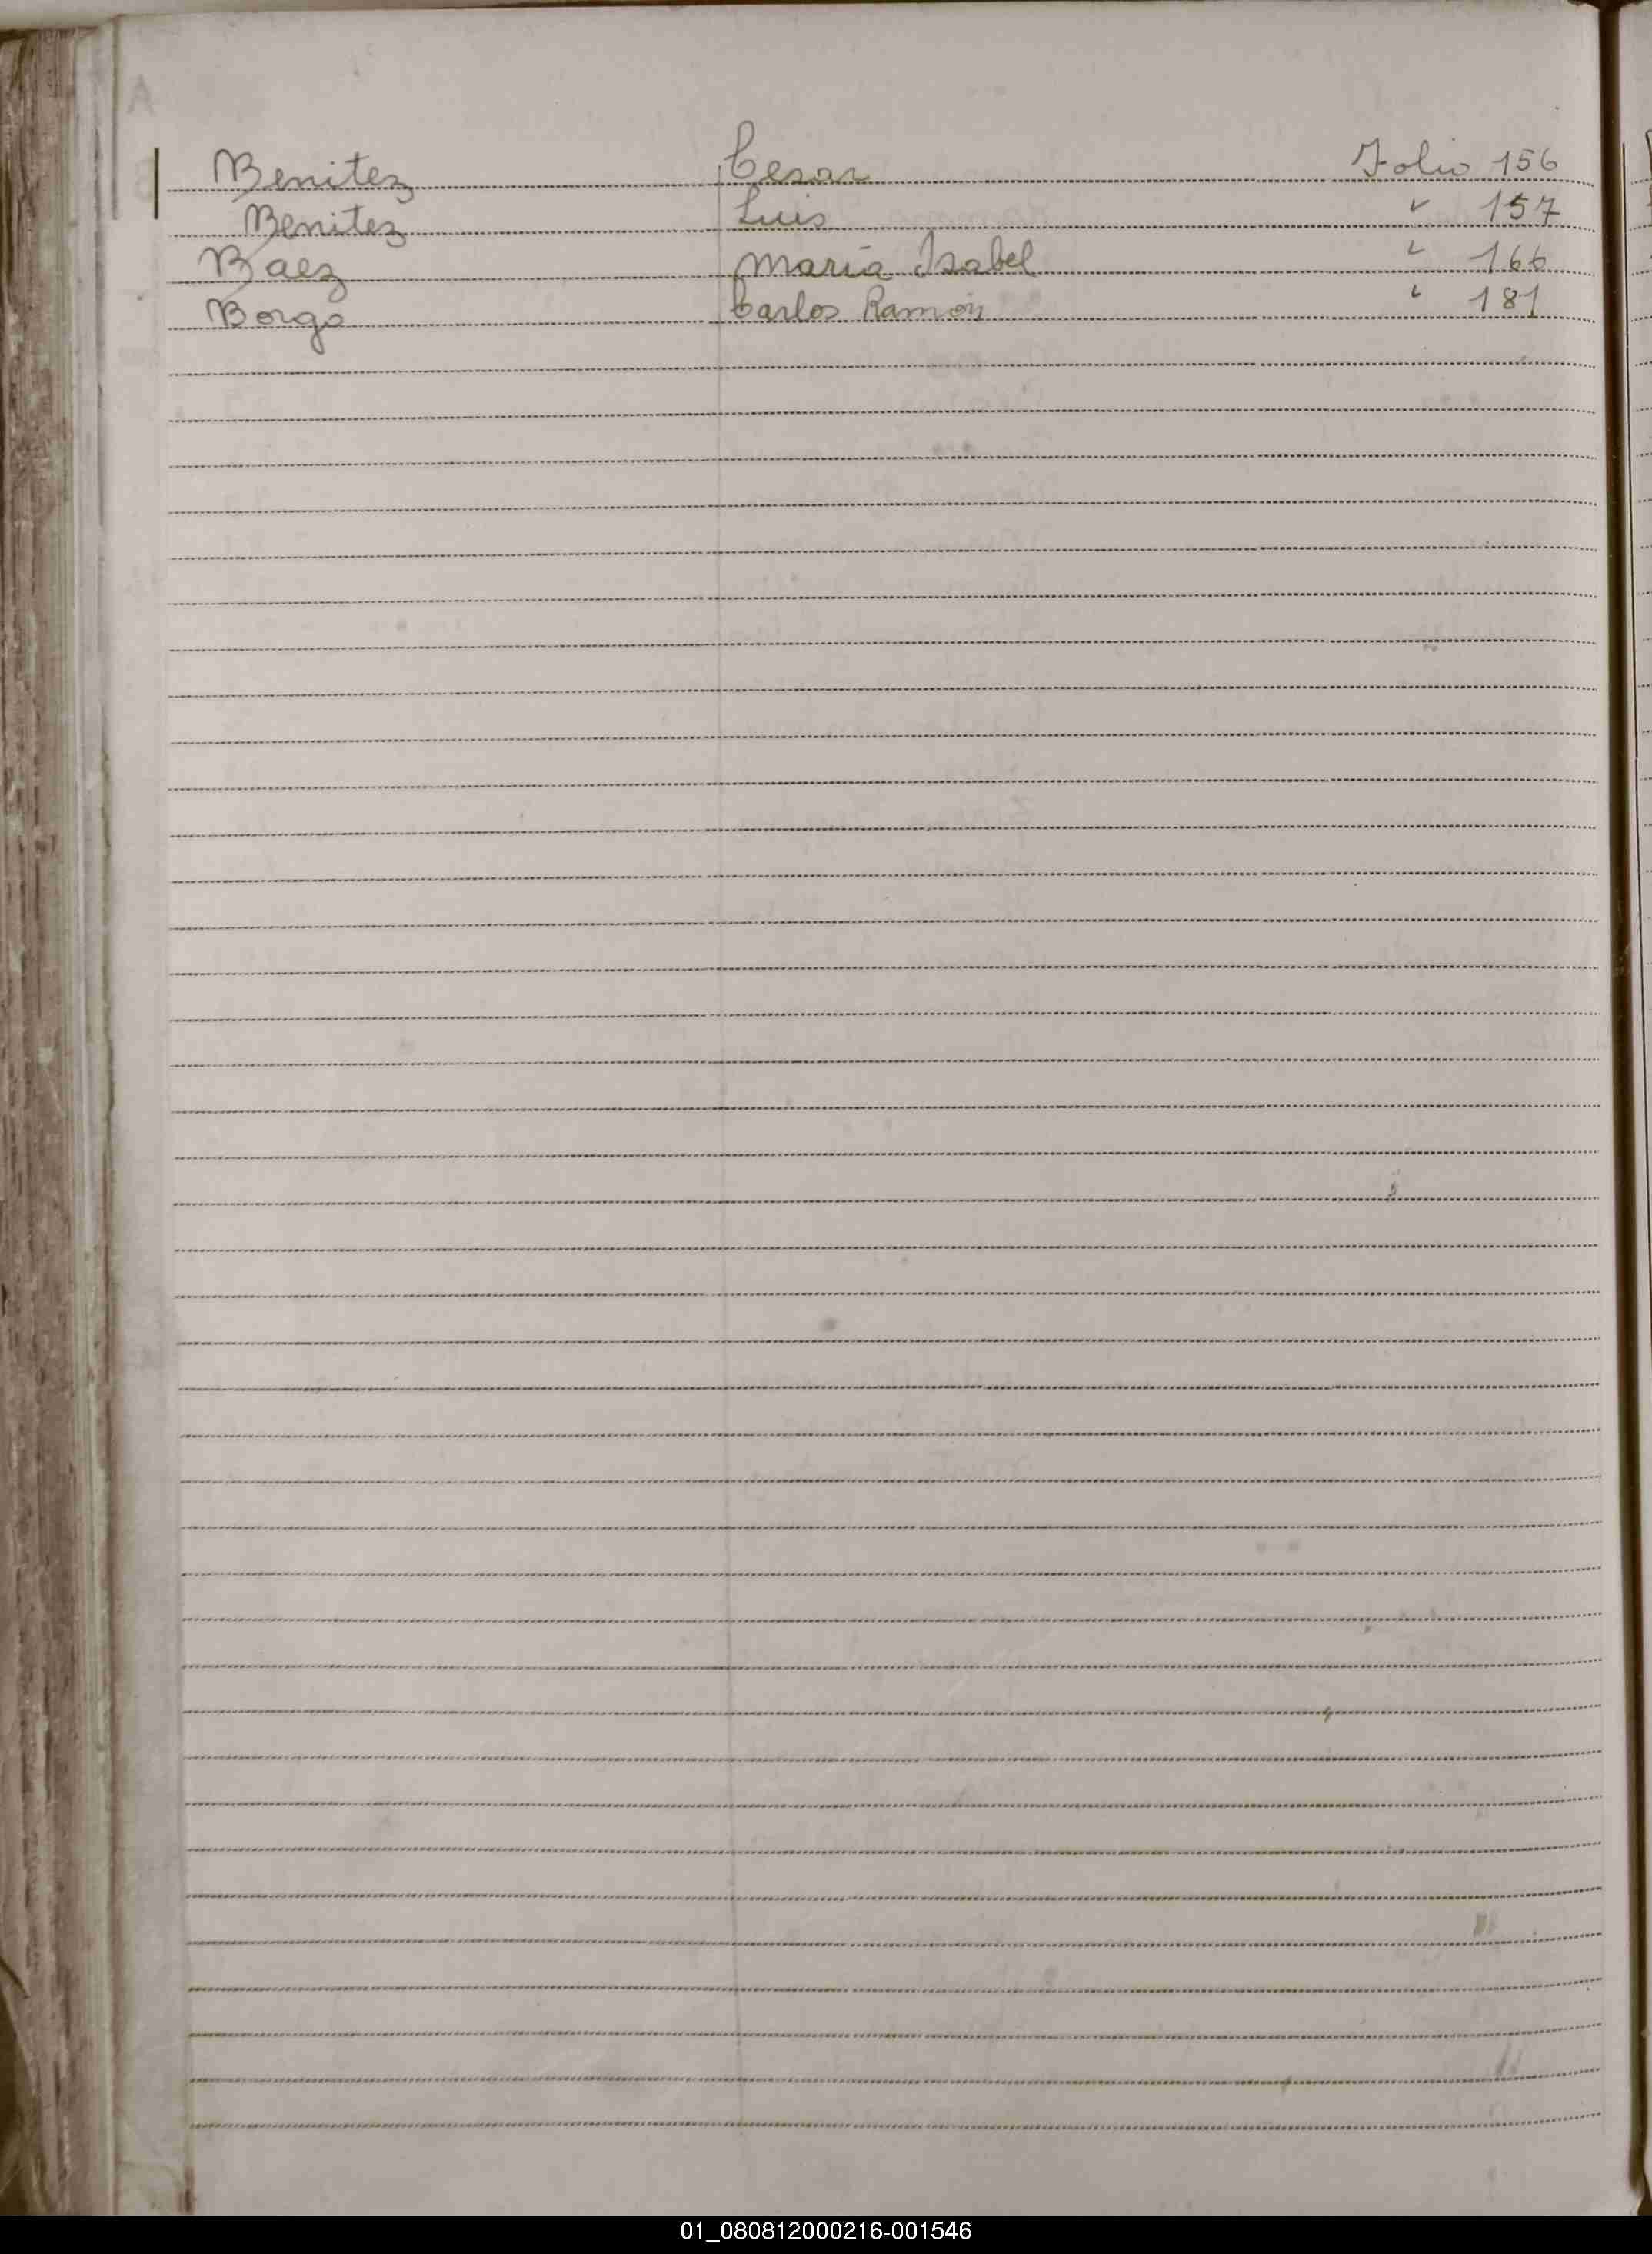 Benitez Cesar Folio 156
Benitez Luis " 157
Baez Maria Isabel " 166
Borgo Carlos Ramón " 181
01_080812000216-001546